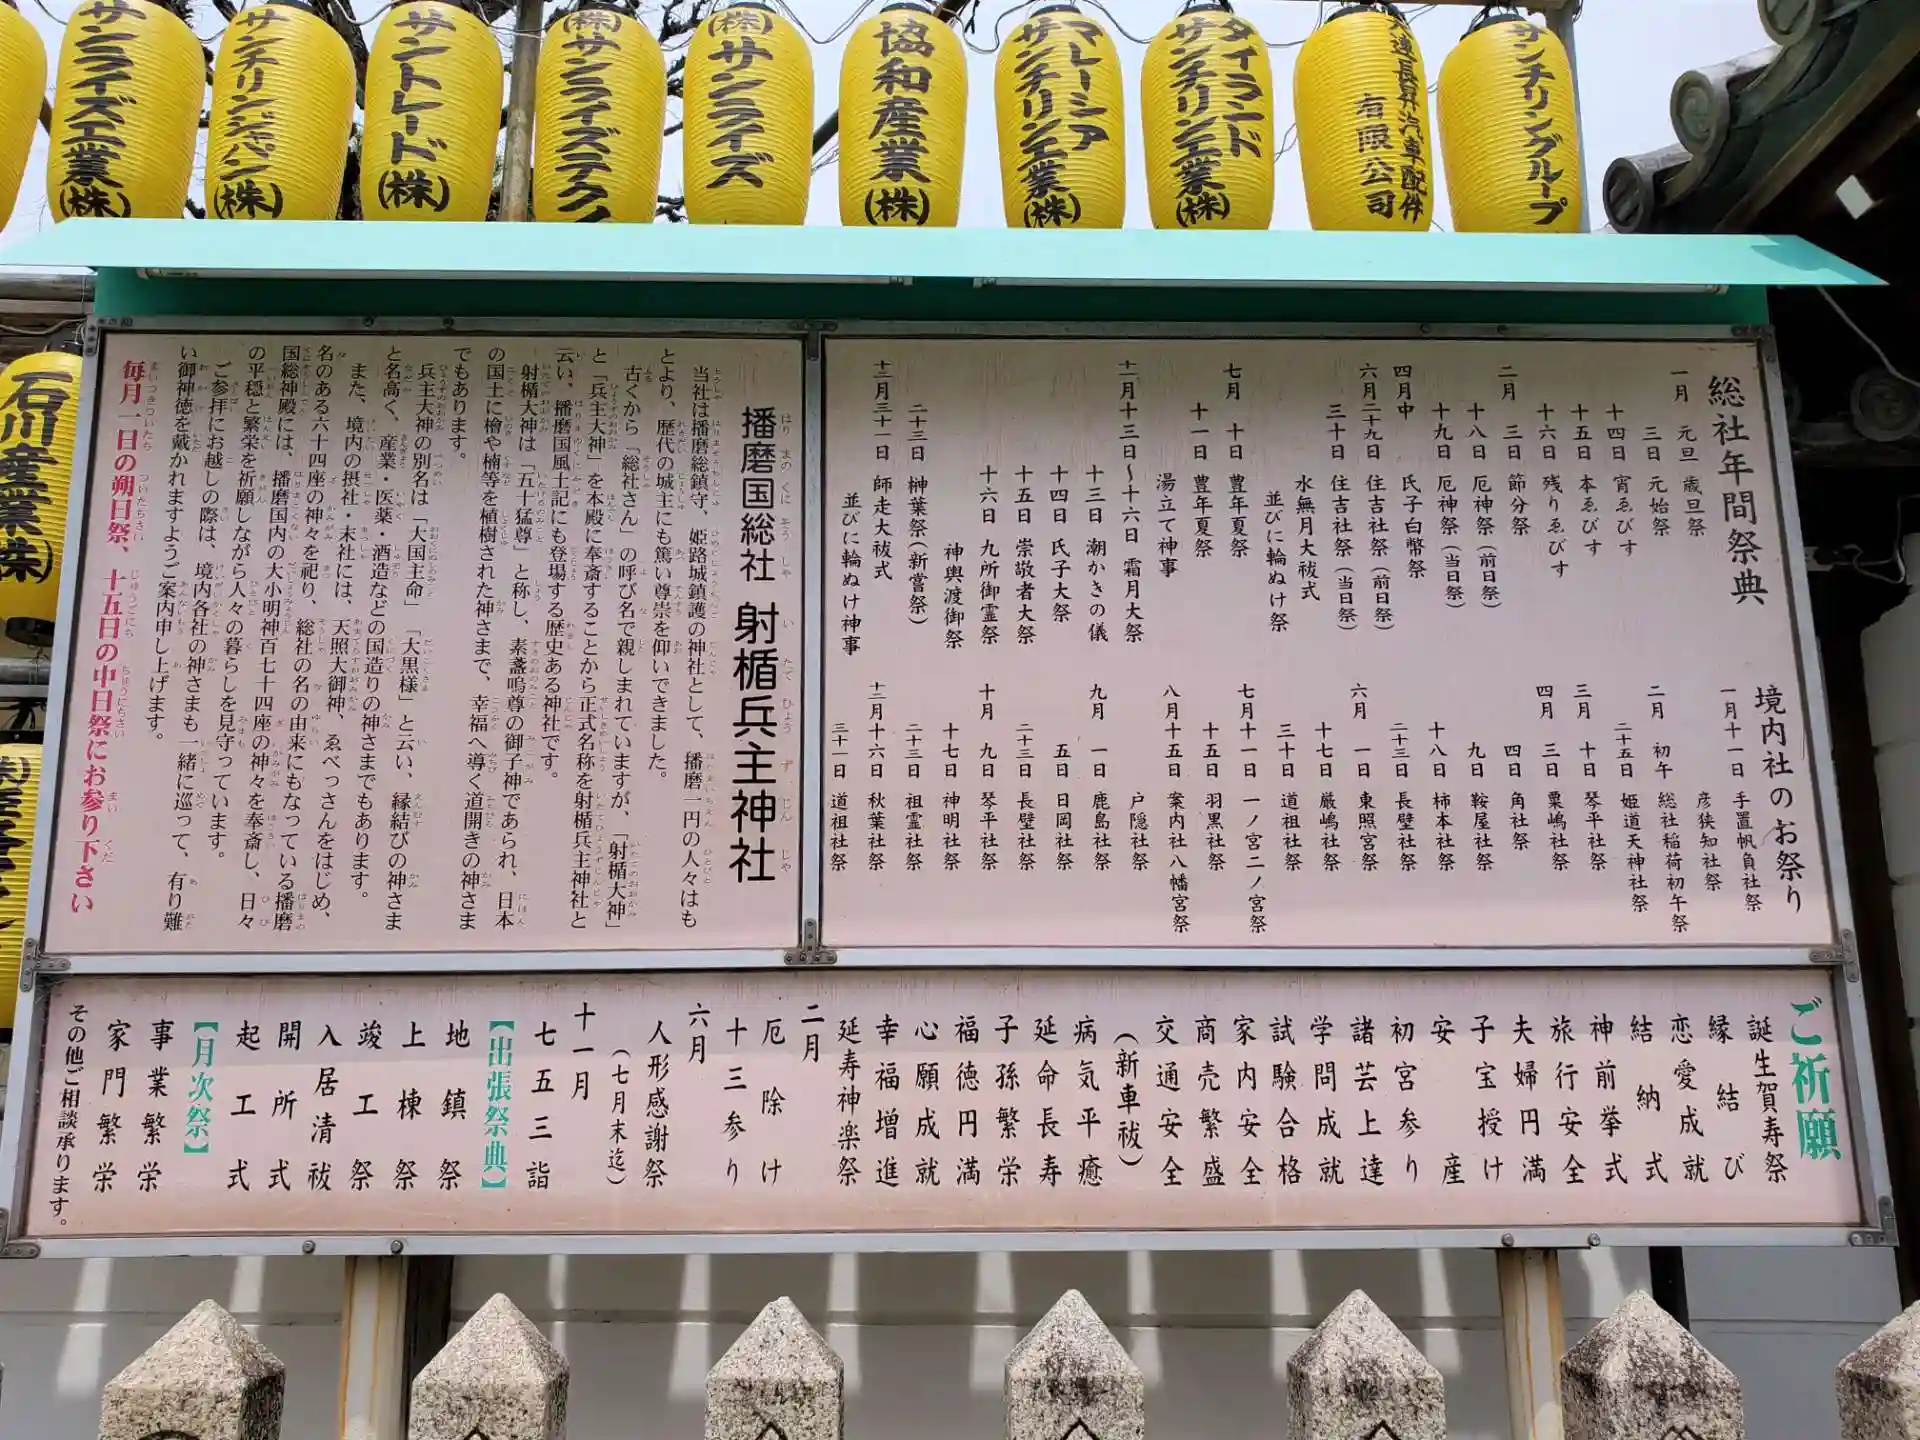 サンライズ工業(株)
サンチリンジャパン(株)
サントレード(株)
(株)サンライズテクノ
(株)サンライズ
協和産業(株)
マレーシア
サンチリン工業(株)
タイランド
サンチリン工業(株)
大連長昇汽車配件
有限公司
サンチリングループ
石川産業(株)
総社年間祭典
一月 元旦 歳旦祭
三日 元始祭
十四日 宵ゑびす
十五日 本ゑびす
十六日 残りゑびす
二月 三日 節分祭
十八日 厄神祭(前日祭)
十九日 厄神祭(当日祭)
四月中 氏子白幣祭
六月二十九日 住吉社祭(前日祭)
三十日 住吉社祭(当日祭)
水無月大祓式
並びに輪ぬけ祭
七月 十日 豊年夏祭
十一日 豊年夏祭
湯立て神事
十一月十三日～十六日 霜月大祭
十三日 潮かきの儀
十四日 氏子大祭
十五日 崇敬者大祭
十六日 九所御霊祭
神輿渡御祭
二十三日 榊葉祭(新嘗祭)
十二月三十一日 師走大祓式
並びに輪ぬけ神事
境内社のお祭り
一月十一日 手置帆負社祭
彦狭知社祭
二月 初午 総社稲荷初午祭
二十五日 姫道天神社祭
三月 十日 琴平社祭
三日 粟嶋社祭
四月 四日 角社祭
九日 鞍屋社祭
十八日 柿本社祭
二十三日 長壁社祭
六月 一日 東照宮祭
十七日 厳嶋社祭
三十日 道祖社祭
七月十一日 一ノ宮二ノ宮祭
十五日 羽黒社祭
八月十五日 案内社八幡宮祭
戸隠社祭
九月 一日 鹿島社祭
五日 日岡社祭
二十三日 長壁社祭
十月 九日 琴平社祭
十七日 神明社祭
二十三日 祖霊社祭
十二月十六日 秋葉社祭
三十一日 道祖社祭
播磨国総社 射楯兵主神社
はりまのくにそうしゃ いたてひょうずじんじゃ
当社は播磨総鎮守、姫路城鎮護の神社として、播磨一円の人々はも
とより、歴代の城主にも篤い尊崇を仰いできました。
古くから「総社さん」の呼び名で親しまれていますが、「射楯大神」
と「兵主大神」を本殿に奉斎することから正式名称を射楯兵主神社と
云い、播磨国風土記にも登場する歴史ある神社です。
射楯大神は「五十猛尊」と称し、素盞嗚尊の御子神であられ、日本
の国土に檜や楠等を植樹された神さまで、幸福へ導く道開きの神さま
でもあります。
兵主大神の別名は「大国主命」「大黒様」と云い、縁結びの神さま
と名高く、産業・医薬・酒造などの国造りの神さまでもあります。
また、境内の摂社・末社には、天照大御神、ゑべっさんをはじめ、
名のある六十四座の神々を祀り、総社の名の由来にもなっている播磨
国総神殿には、播磨国内の大小明神百七十四座の神々を奉斎し、日々
の平穏と繁栄を祈願しながら人々の暮らしを見守っています。
ご参拝にお越しの際は、境内各社の神さまも一緒に巡って、有り難
い御神徳を戴かれますようご案内申し上げます。
毎月一日の朔日祭、十五日の中日祭にお参り下さい
ご祈願
誕生賀寿祭
縁結び
恋愛成就
結納式
神前挙式
旅行安全
夫婦円満
子宝授け
安産
初宮参り
諸芸上達
学問成就
試験合格
家内安全
商売繁盛
交通安全
(新車祓)
病気平癒
延命長寿
子孫繁栄
福徳円満
心願成就
幸福増進
延寿神楽祭
二月
厄除け
十三参り
六月
人形感謝祭
(七月末迄)
十一月
七五三詣
【出張祭典】
地鎮祭
上棟祭
竣工祭
入居清祓
開所式
起工式
【月次祭】
事業繁栄
家門繁栄
その他ご相談承ります。